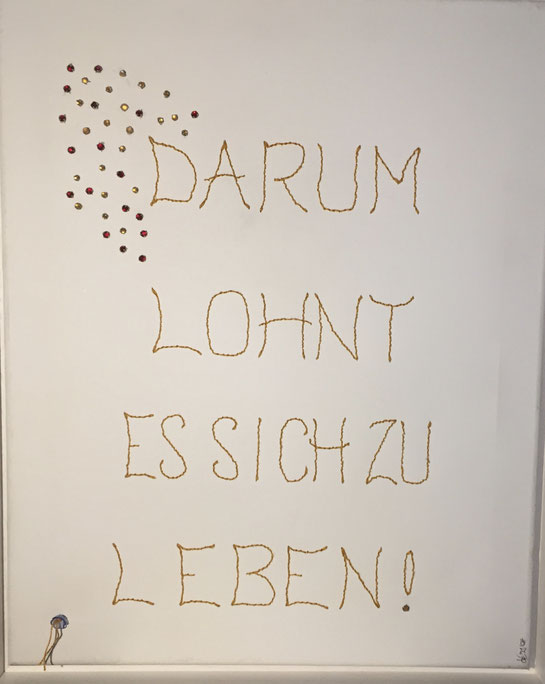 DARUM
LOHNT
ES SICH ZU
LEBEN!